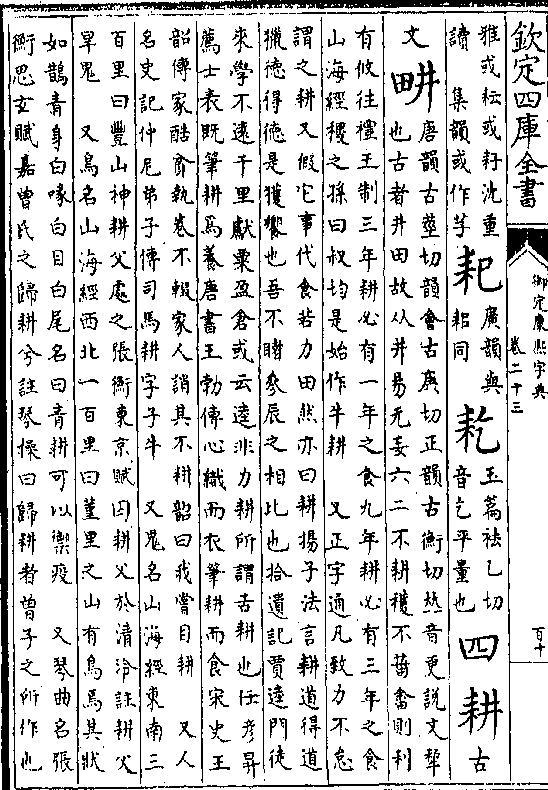 欽定四庫全書
御定康熙字典
卷二十三
百十
雅或耘或耔沈重
讀　集韻或作芓
廣韻與
耜同
玉篇祛乞切
音乞平量也
四
耕
古
文
畊
唐韻古莖切韻會古庚切正韻古衡切𠀤音更說文犂
也古者井田故从井易无妄六二不耕穫不菑畬則利
有攸往禮王制三年耕必有一年之食九年耕必有三年之食
山海經稷之孫曰叔均是始作牛耕　又正字通凡致力不怠
謂之耕又假它事代食若力田然亦曰耕揚子法言耕道得道
獵德得德是獲饗也吾不睹參辰之相比也拾遺記賈逵門徒
來學不遠千里獻粟盈倉或云逵非力耕所謂舌耕也任彥昇
薦士表既筆耕爲養唐書王勃傳心織而衣筆耕而食宋史王
韶傳家酷貧執卷不輟家人誚其不耕韶曰我嘗目耕　又人
名史記仲尼弟子傳司馬耕字子牛　又鬼名山海經東南三
百里曰豐山神耕父處之張衡東京賦囚耕父於清泠註耕父
旱鬼　又鳥名山海經西北一百里曰堇里之山有鳥焉其狀
如鵲青身白喙白目白尾名曰青耕可以禦疫　又琴曲名張
衡思玄賦嘉曾氏之歸耕兮註琴操曰歸耕者曾子之所作也